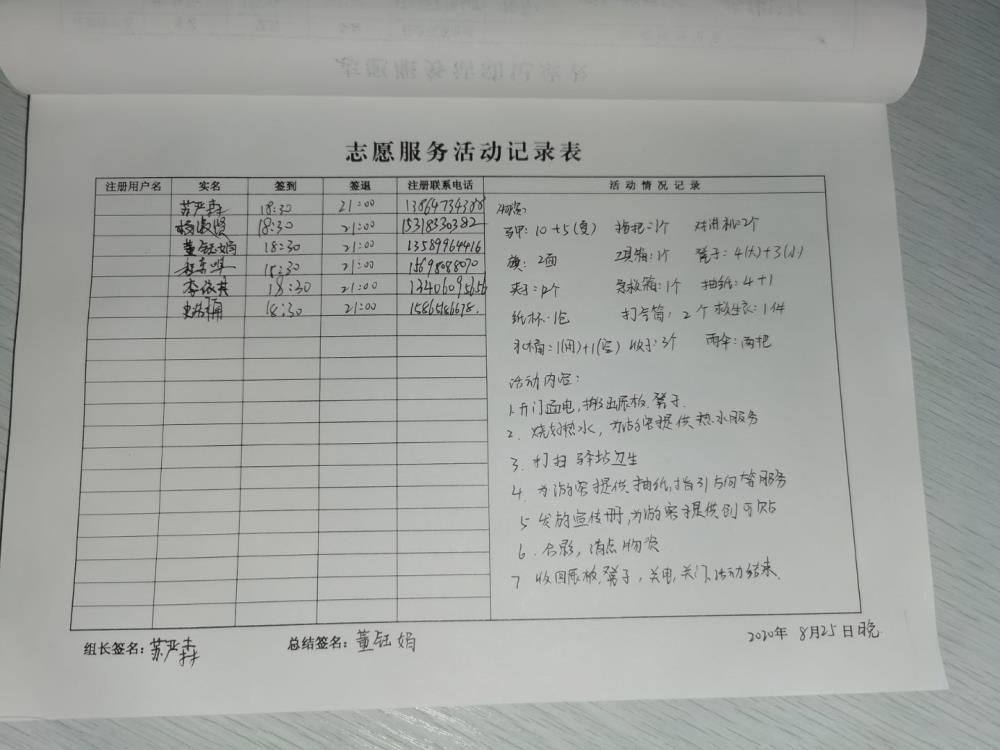 志愿服务活动记录表
注册用户名 实名 签到 签退 注册联系电话 活动情况记录
苏严森 18:30 21:00 13864734388
18:30 21:00 15318330382
董钰娟 18:30 21:00 13589964416
21:00 15698088090
李依其 18:30 21:00 13406095656
18:30 21:00 15865186678.
物资:
马甲: 10+5(夏) 指把:1个 对讲机:2个
旗: 2面 工具箱: 1个 凳子: 4(大)+3(小)
夹子: 急救箱: 1个 抽纸: 4+1
纸杯: 1包 打气筒: 2个 救生衣: 1件
水桶: 1(闲)+1(空) 3个 雨伞: 两把
活动内容:
1.开门通电,搬出展板.凳子.
2. 烧热水, 为游客提供热水服务
3. 打扫驿站卫生
4. 为游客提供抽纸,指引与问答服务
5 发放宣传册,为游客提供创可贴
6. 合影, 清点物资
7 收回展板.凳子, 关电,关门,活动结束.
组长签名: 苏严森 总结签名: 董钰娟 2020年 8月25日晚